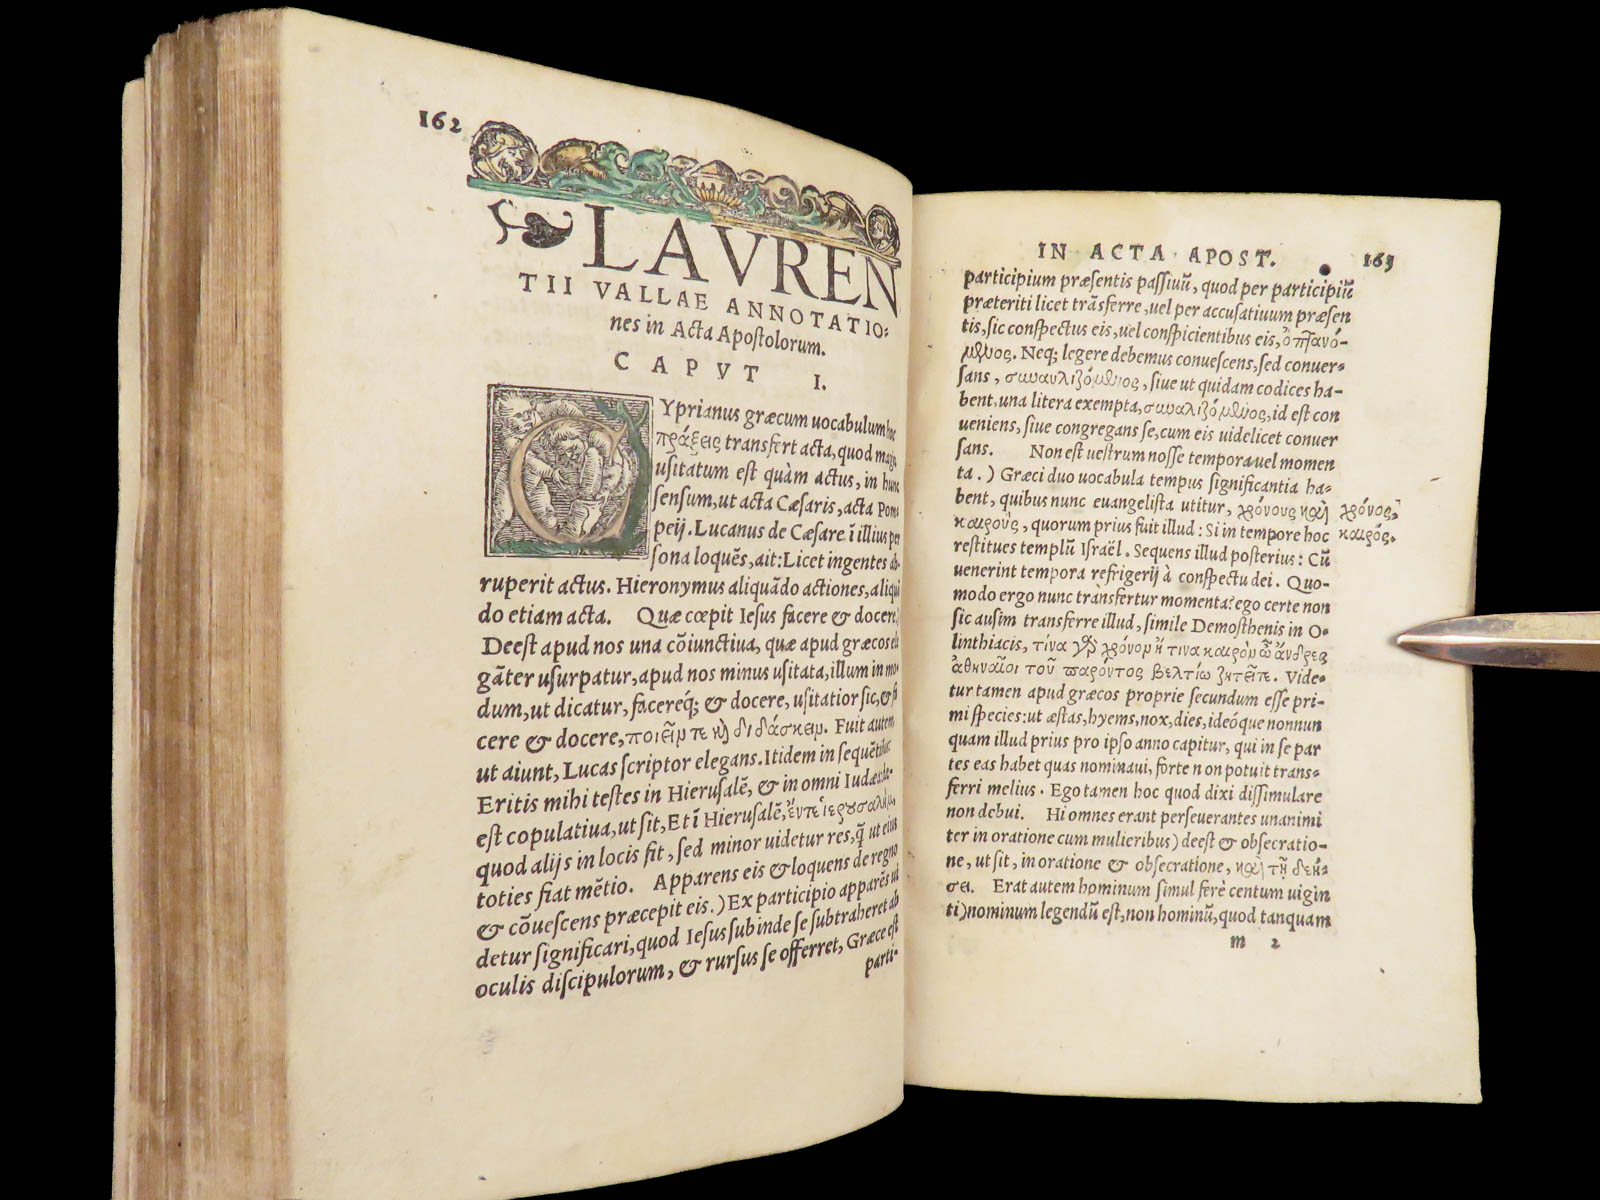 162
LAVREN
TII VALLAE ANNOTATIO:
nes in Acta Apostolorum.
CAPVT I.
CYprianus græcum uocabulum hoc
πράξεις transfert acta, quod magis
usitatum est quàm actus, in hunc
sensum, ut acta Cæsaris, acta Pom
peij. Lucanus de Cæsare ĩ illius per
sona loquẽs, ait: Licet ingentes ab
ruperit actus. Hieronymus aliquãdo actiones, aliquã
do etiam acta. Quæ cœpit Iesus facere & docere.)
Deest apud nos una cõiunctiua, quæ apud græcos ele
gãter usurpatur, apud nos minus usitata, illum in mo-
dum, ut dicatur, facereq́; & docere, usitatior sic, & fa
cere & docere, ποιεῖν τε καὶ διδάσκειν. Fuit autem
ut aiunt, Lucas scriptor elegans. Itidem in sequẽtibus:
Eritis mihi testes in Hierusalẽ, & in omni Iudæa: de-
est copulatiua, ut sit, Et ĩ Hierusalẽ, ἔν τε ἱερουσαλὴμ,
quod alijs in locis fit, sed minor uidetur res, q̃ ut eius
toties fiat mẽtio. Apparens eis & loquens de regno
& cõuescens præcepit eis.) Ex participio apparẽs ui
detur significari, quod Iesus subinde se subtraheret ab
oculis discipulorum, & rursus se offerret, Græce est
parti-
IN ACTA APOST. 163
participium præsentis passiuũ, quod per participiũ
præteriti licet trãsferre, uel per accusatiuum præsen
tis, sic conspectus eis, uel conspicientibus eis, ὀπτανό-
μενος. Neq; legere debemus conuescens, sed conuer-
sans, συναυλιζόμενος, siue ut quidam codices ha-
bent, una litera exempta, συναλιζόμενος, id est con
ueniens, siue congregans se, cum eis uidelicet conuer
sans. Non est uestrum nosse tempora uel momen
ta.) Græci duo uocabula tempus significantia ha-
bent, quibus nunc euangelista utitur, χρόνους καὶ
χρόνος,
καιροὺς, quorum prius fuit illud: Si in tempore hoc
καιρός.
restitues templũ Israël. Sequens illud posterius: Cũ
uenerint tempora refrigerij à conspectu dei. Quo-
modo ergo nunc trànsfertur momenta? ego certe non
sic ausim transferre illud, simile Demosthenis in O-
linthiacis, τίνα γὰρ χρόνον ἢ τινα καιρὸν ὦ ἄνδρες
ἀθηναῖοι τοῦ παρόντος βελτίω ζητεῖτε. Vide-
tur tamen apud græcos proprie secundum esse pri-
mi species: ut æstas, hyems, nox, dies, ideóque nonnun
quam illud prius pro ipso anno capitur, qui in se par
tes eas habet quas nominaui, forte non potuit trans-
ferri melius. Ego tamen hoc quod dixi dissimulare
non debui. Hi omnes erant perseuerantes unanimi
ter in oratione cum mulieribus) deest & obsecratio-
ne, ut sit, in oratione & obsecratione, καὶ τῇ δεή-
σει. Erat autem hominum simul ferè centum uigin
ti) nominum legendũ est, non hominũ, quod tanquam
m 2